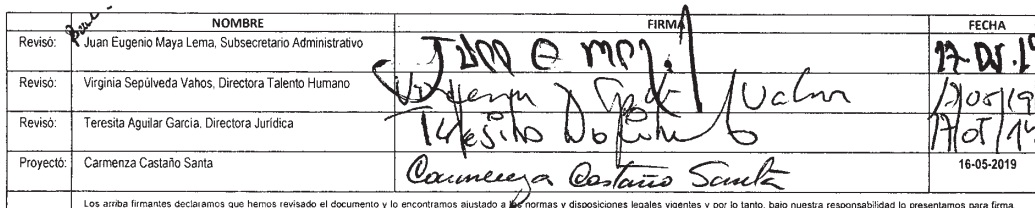 NOMBRE FIRMA FECHA
Revisó: Juan Eugenio Maya Lema, Subsecretario Administrativo 17.05.19
Revisó: Virginia Sepúlveda Vahos, Directora Talento Humano 17/05/19
Revisó: Teresita Aguilar Garcia. Directora Jurídica 17/05/19
Proyectó: Carmenza Castaño Santa Carmenza Castaño Santa 16-05-2019
Los arriba firmantes declaramos que hemos revisado el documento y lo encontramos ajustado a las normas y disposiciones legales vigentes y por lo tanto, bajo nuestra responsabilidad lo presentamos para firma